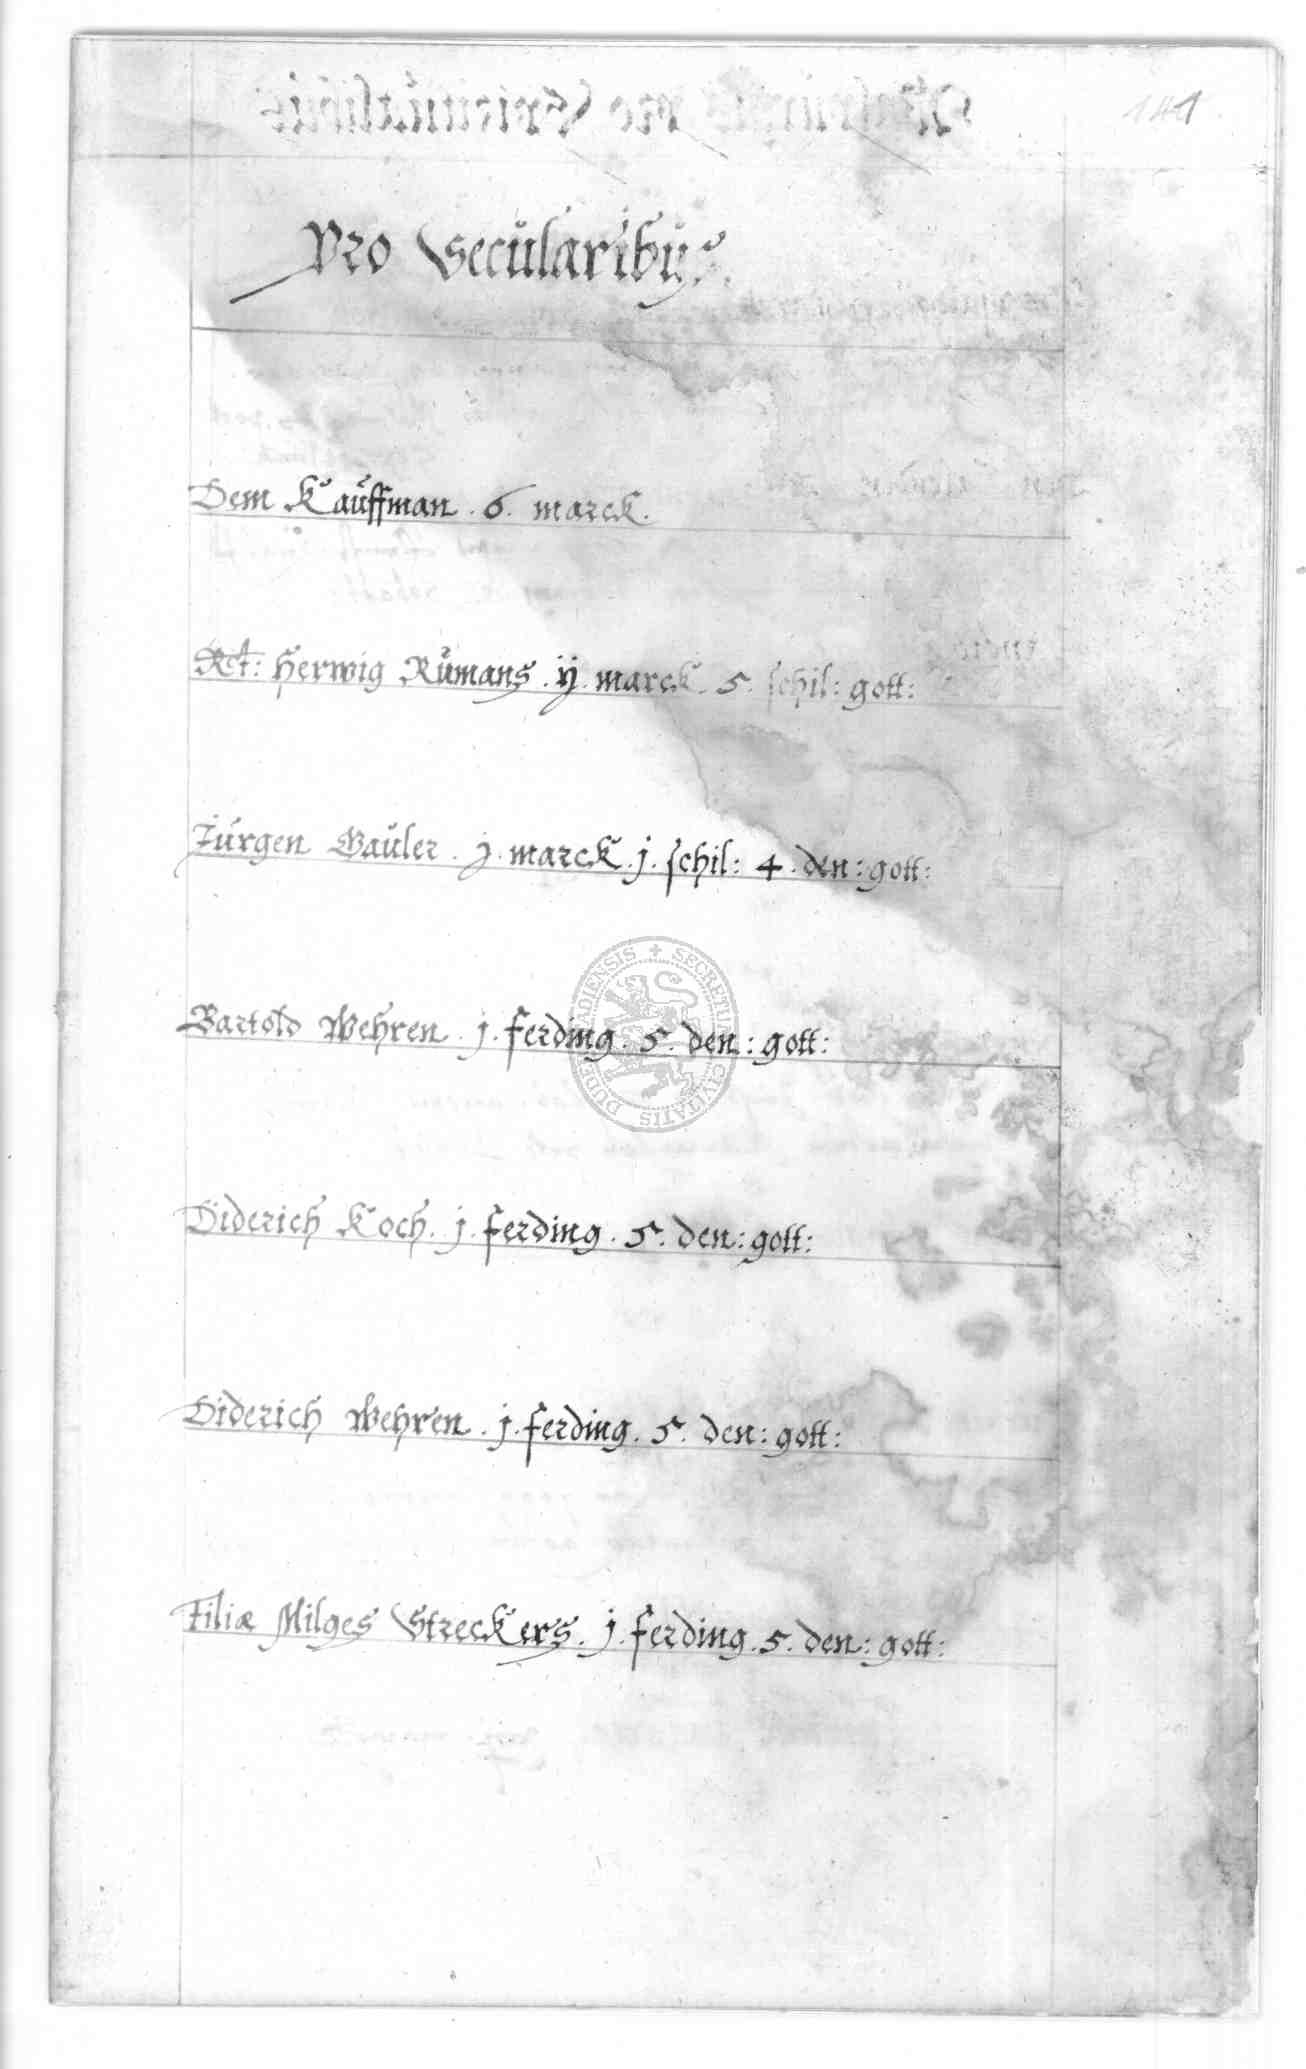 141
Pro Secularibus.
Dem Kauffman . 6 . marck .
Rt: Herwig Rümans . ij . marck . 5 . schil: gott:
Jürgen Gaüler . j . marck . j . schil: 4 . den: gott:
Bartold Wehren . j . ferding . 5 . den: gott:
Diderich Koch . j . ferding . 5 . den: gott:
Diderich Wehren . j . ferding . 5 . den: gott:
Filiæ Milges Streckers . j . ferding . 5 . den: gott:
SECRETUM CIVITATIS